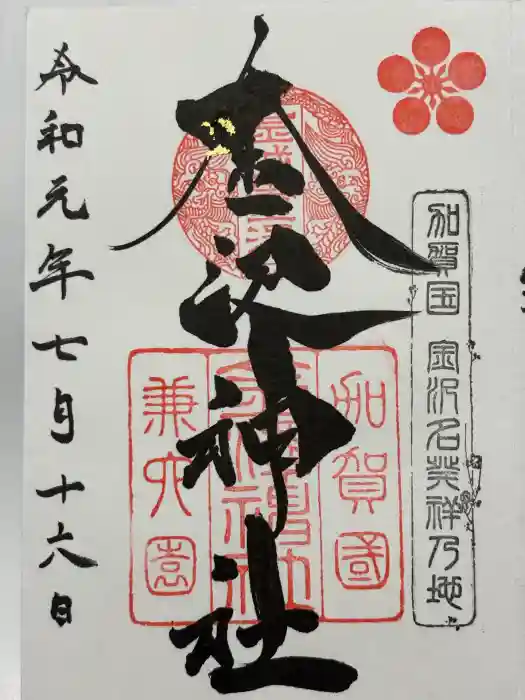 加賀国 金沢名発祥乃地
金沢神社
加賀國
金沢神社
兼六園
令和元年七月十六日